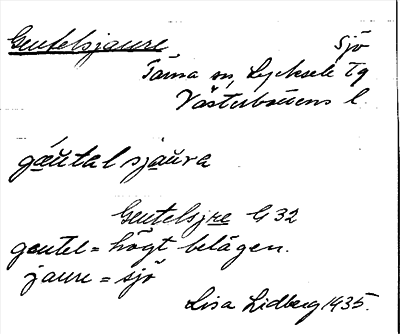 Geutelsjaure Sjö
Tärna sn, Lycksele lg
Västerbottens l.
gáu̯tal sjau̯ra
Geutelsjre G 32
geutel = högt belägen.
jaure = sjö
Lisa Lidberg 1935.